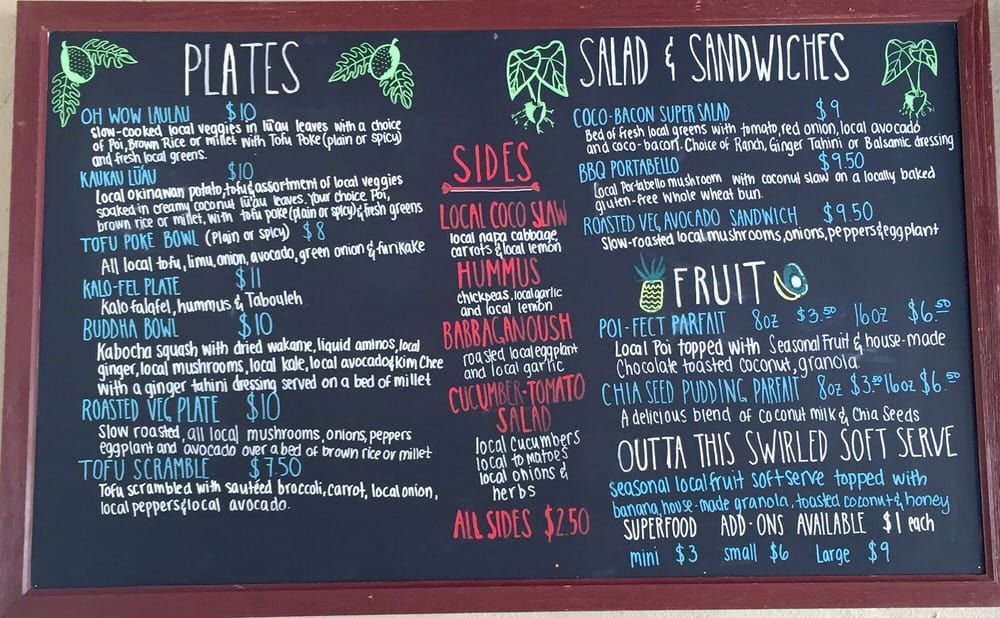 PLATES
OH WOW LAULAU $10
Slow-cooked local veggies in lū'au leaves with a choice
of Poi, Brown Rice or millet with Tofu Poke (plain or spicy)
and fresh local greens.
KAUKAU LŪAU $10
Local Okinawan potato, tofu & assortment of local veggies
soaked in creamy coconut lū'au leaves. Your choice Poi,
brown rice or millet, with tofu poke (plain or spicy) & fresh greens
TOFU POKE BOWL (Plain or spicy) $8
All local tofu, limu, onion, avocado, green onion & furikake
KALO-FEL PLATE $11
Kalo falafel, hummus & Tabouleh
BUDDHA BOWL $10
Kabocha squash with dried wakame, liquid aminos, local
ginger, local mushrooms, local kale, local avocado & Kim Chee
with a ginger tahini dressing served on a bed of millet
ROASTED VEG PLATE $10
Slow roasted, all local mushrooms, onions, peppers
eggplant and avocado over a bed of brown rice or millet
TOFU SCRAMBLE $7.50
Tofu scrambled with sautéed broccoli, carrot, local onion,
local peppers & local avocado.
SIDES
LOCAL COCO SLAW
local napa cabbage,
carrots & local lemon
HUMMUS
chickpeas, local garlic
and local lemon
BABBAGANOUSH
roasted local eggplant
and local garlic
CUCUMBER-TOMATO
SALAD
local cucumbers
local tomatoes
local onions &
herbs
ALL SIDES $2.50
SALAD & SANDWICHES
COCO-BACON SUPER SALAD $9
Bed of fresh local greens with tomato, red onion, local avocado
and coco-bacon. Choice of Ranch, Ginger Tahini or Balsamic dressing
BBQ PORTABELLO $9.50
Local Portabello mushroom with coconut slaw on a locally baked
gluten-free whole wheat bun.
ROASTED VEG AVOCADO SANDWICH $9.50
Slow-roasted local mushrooms, onions, peppers & eggplant
FRUIT
POI-FECT PARFAIT 8oz $3.50 16oz $6.50
Local Poi topped with Seasonal Fruit & house-made
Chocolate toasted coconut, granola.
CHIA SEED PUDDING PARFAIT 8oz $3.50 16oz $6.50
A delicious blend of coconut milk & Chia Seeds
OUTTA THIS SWIRLED SOFT SERVE
Seasonal local fruit soft serve topped with
banana, house-made granola, toasted coconut & honey
SUPERFOOD ADD-ONS AVAILABLE $1 each
mini $3 small $6 Large $9